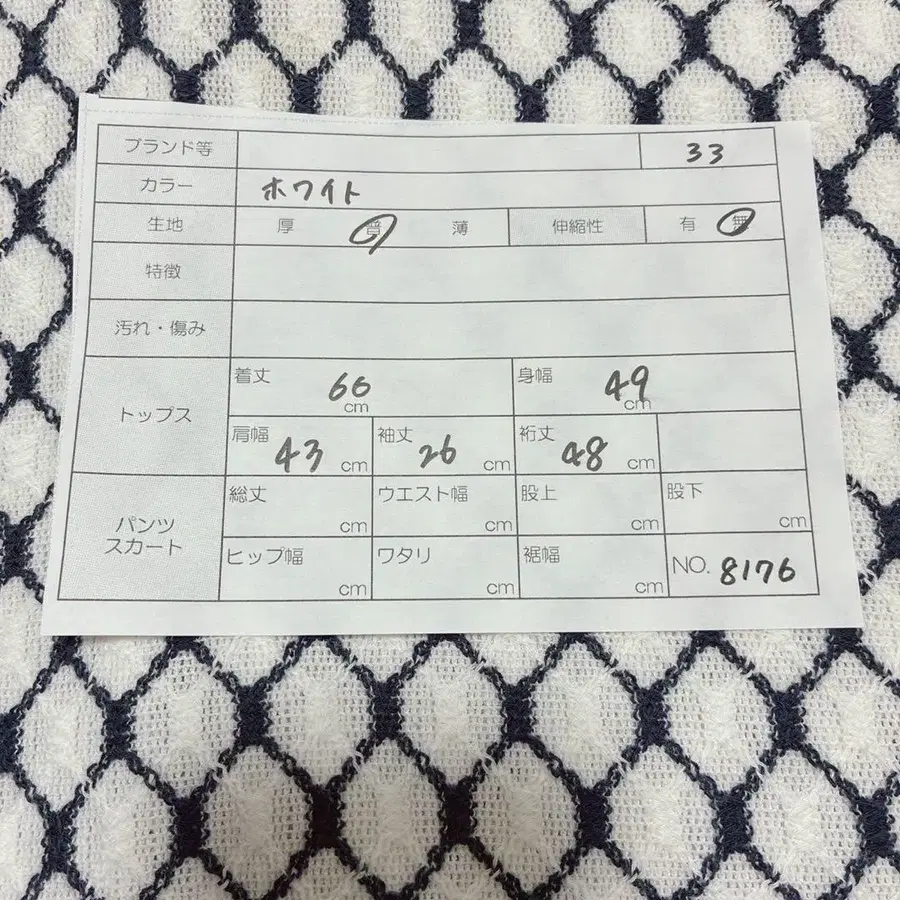 ブランド等 33
カラー ホワイト
生地 厚 普 薄 伸縮性 有 無
特徴
汚れ・傷み
トップス 着丈 66 cm 身幅 49 cm
肩幅 43 cm 袖丈 26 cm 裄丈 48 cm
パンツ スカート 総丈 cm ウエスト幅 cm 股上 cm 股下 cm
ヒップ幅 cm ワタリ cm 裾幅 cm NO. 8176